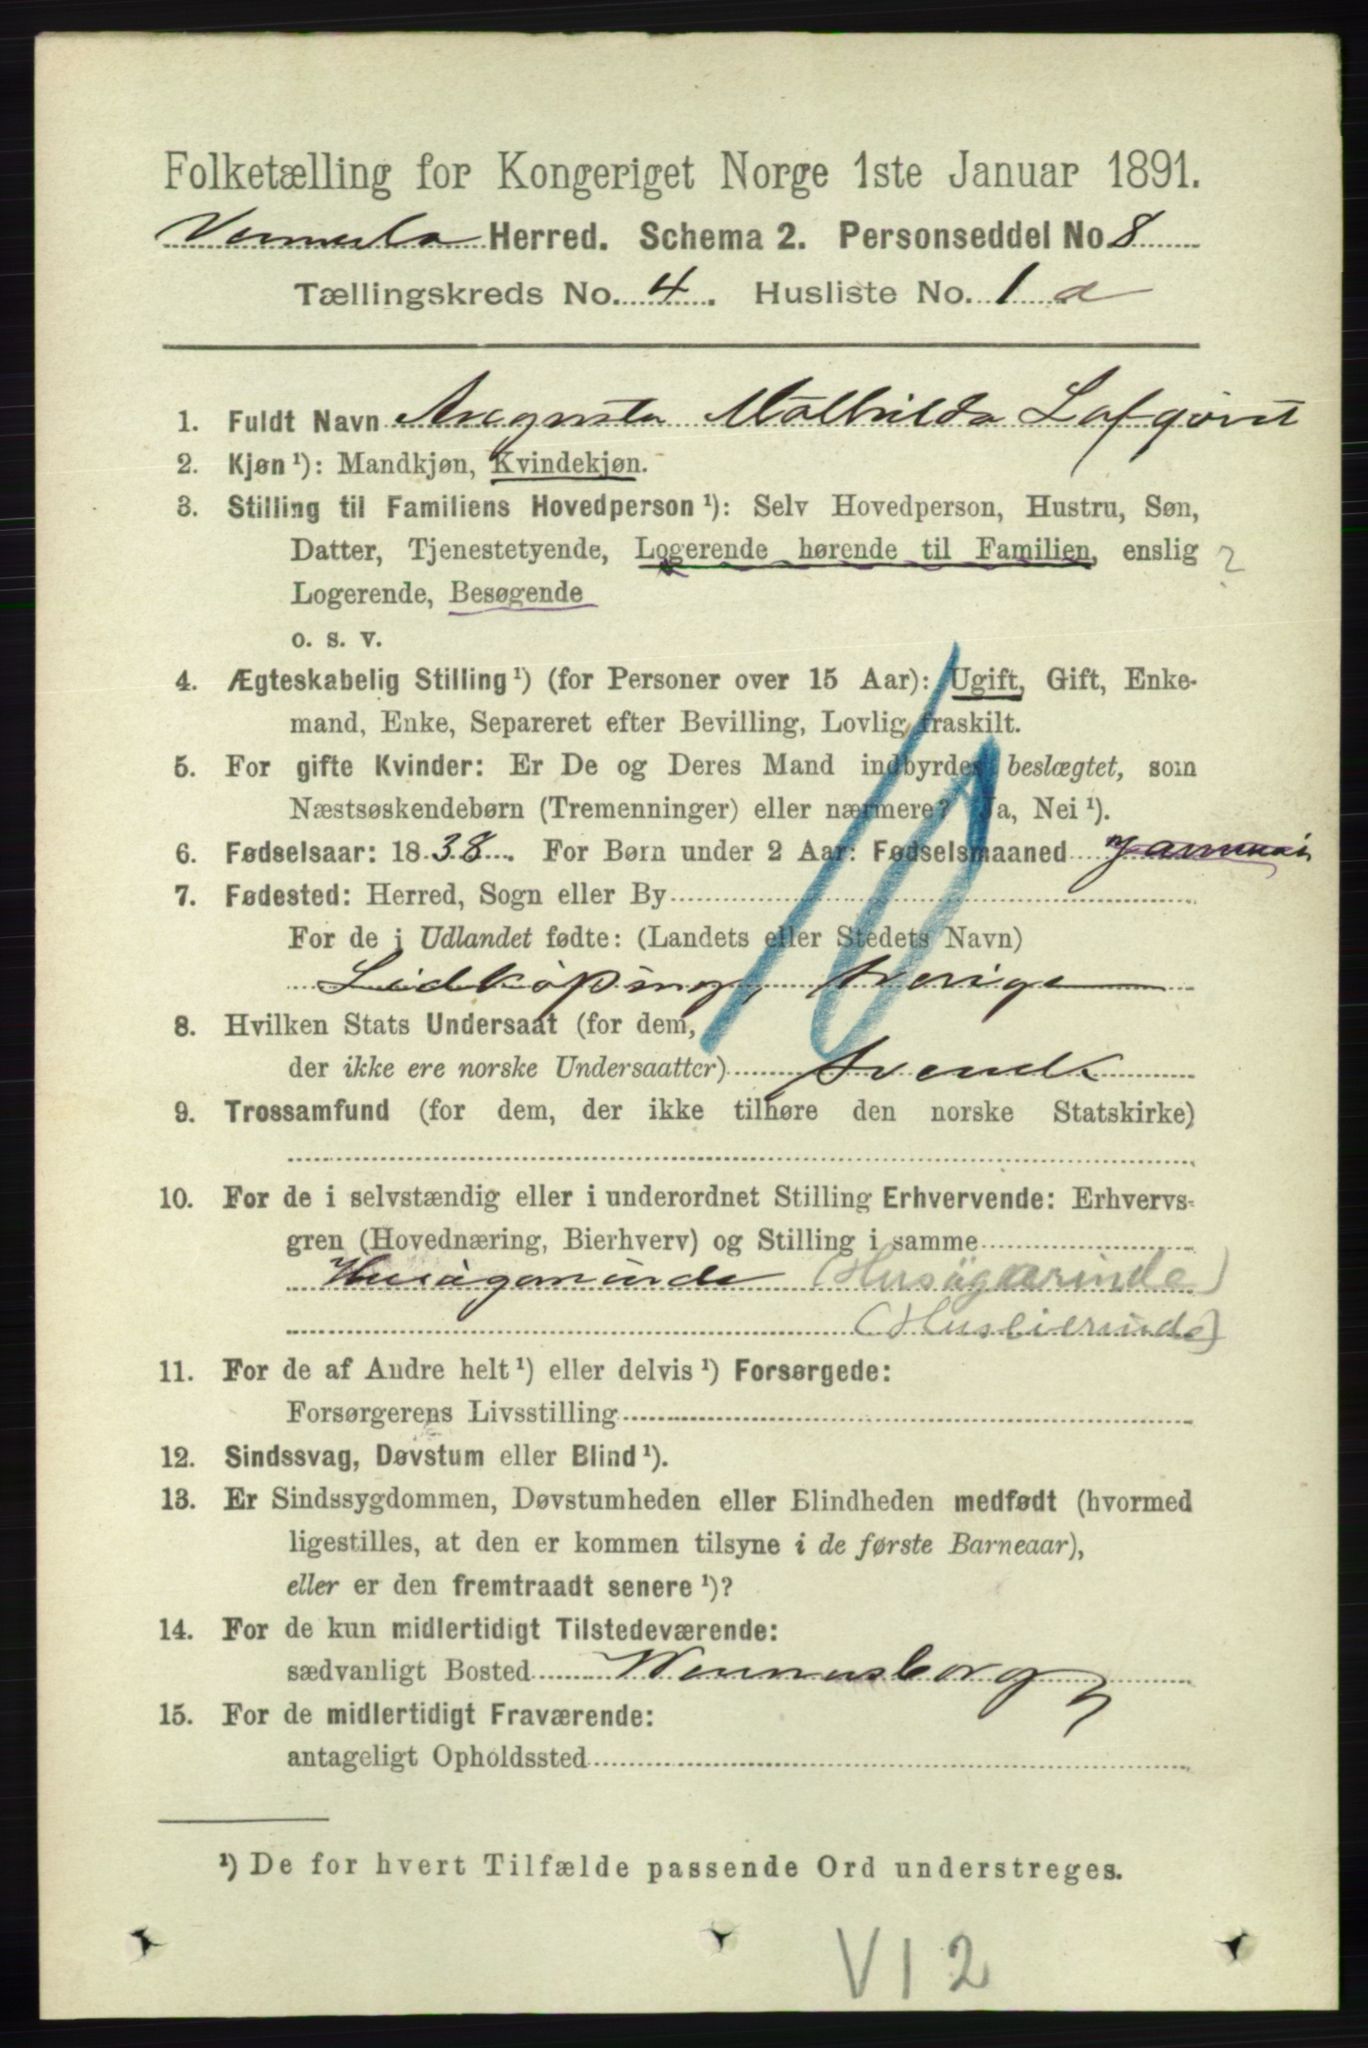 Folketælling for Kongeriget Norge 1ste Januar 1891.
Vennesla Herred. Schema 2. Personseddel No. 8
Tællingskreds No. 4. Husliste No. 1 a
1. Fuldt Navn Augusta Mathilda Lofqvist
2. Kjøn ¹): Mandkjøn, Kvindekjøn.
3. Stilling til Familiens Hovedperson ¹): Selv Hovedperson, Hustru, Søn,
Datter, Tjenestetyende, Logerende hørende til Familien, enslig ?
Logerende, Besøgende
o. s. v.
4. Ægteskabelig Stilling ¹) (for Personer over 15 Aar): Ugift, Gift, Enke-
mand, Enke, Separeret efter Bevilling, Lovlig fraskilt.
5. For gifte Kvinder: Er De og Deres Mand indbyrdes beslægtet, som
Næstsøskendebørn (Tremenninger) eller nærmere? Ja, Nei ¹).
6. Fødselsaar: 1838. For Børn under 2 Aar: Fødselsmaaned Januari
7. Fødested: Herred, Sogn eller By
For de i Udlandet fødte: (Landets eller Stedets Navn)
Lidköping, Sverige
8. Hvilken Stats Undersaat (for dem,
der ikke ere norske Undersaatter) Svensk
9. Trossamfund (for dem, der ikke tilhøre den norske Statskirke)
10. For de i selvstændig eller i underordnet Stilling Erhvervende: Erhvervs-
gren (Hovednæring, Bierhverv) og Stilling i samme
Husägarinde (Husägarinde)
(Huseierinde)
11. For de af Andre helt ¹) eller delvis ¹) Forsørgede:
Forsørgerens Livsstilling
12. Sindssvag, Døvstum eller Blind ¹).
13. Er Sindssygdommen, Døvstumheden eller Blindheden medfødt (hvormed
ligestilles, at den er kommen tilsyne i de første Barneaar),
eller er den fremtraadt senere ¹)?
14. For de kun midlertidigt Tilstedeværende:
sædvanligt Bosted Wennersborg
15. For de midlertidigt Fraværende:
antageligt Opholdssted
¹) De for hvert Tilfælde passende Ord understreges.
V12